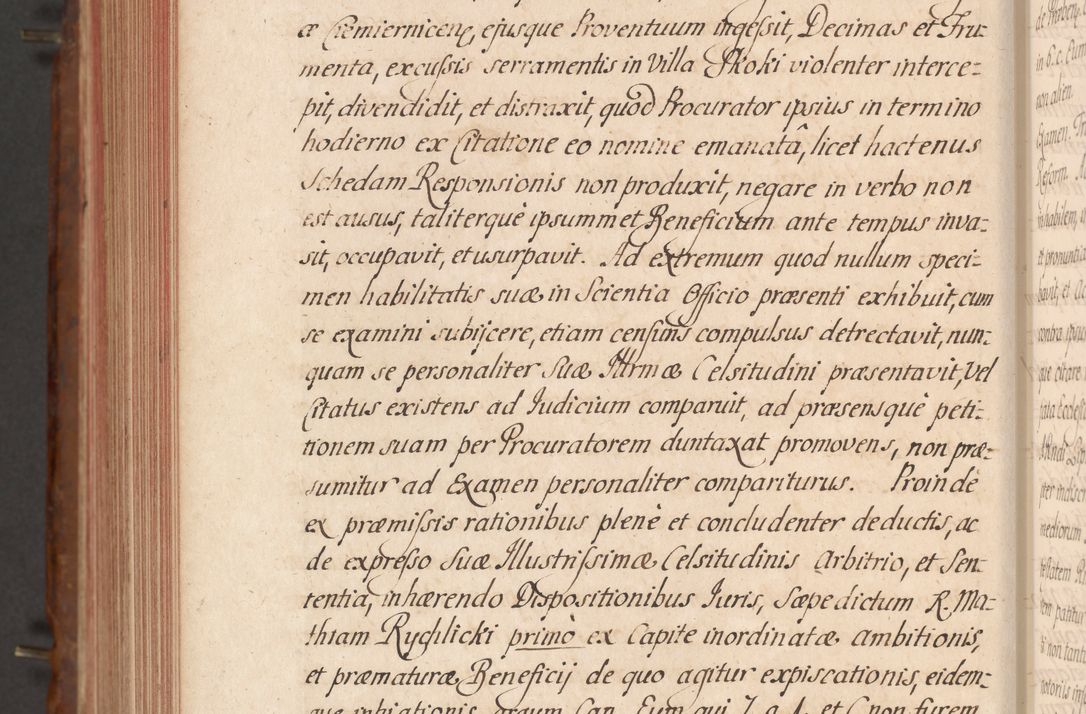 æ Ciemiernicen, ejusque Proventuum ingessit, Decimas et Fru-
menta, excussis serramentis in Villa Skoki violenter interce-
pit, divendidit, et distraxit, quod Procurator ipsius in termino
hodierno ex Citatione eo nomine emanatâ, licet hactenus
Schedam Responsionis non produxit, negare in verbo non
est ausus, taliterquè ipsummet Beneficium ante tempus inva-
sit, occupavit, et usurpavit. Ad extremum quod nullum speci-
men habilitatis suæ in Scientia Officio præsenti exhibuit, cum
se examini subijcere, etiam censuris compulsus detrectavit, nun-
quam se personaliter Suæ Illrmæ Celsitudini præsentavit, vel
Citatus existens ad Judicium comparuit, ad præsensquè peti-
tionem suam per Procuratorem duntaxat promovens, non præ-
sumitur ad Examen personaliter compariturus. Proindè
ex præmissis rationibus plenè et concludenter deductis, ac
de expresso Suæ Illustrissimæ Celsitudinis arbitrio, et Sen-
tentia, inhærendo Dispositionibus Juris, Sæpedictum R. Ma-
thiam Rychlicki primò ex Capite inordinatæ ambitionis,
et præmaturæ Beneficij de quo agitur expiscationis, eidem-
que inhiationis, argum Can. Eum qui 7. q. 1. et C non furem